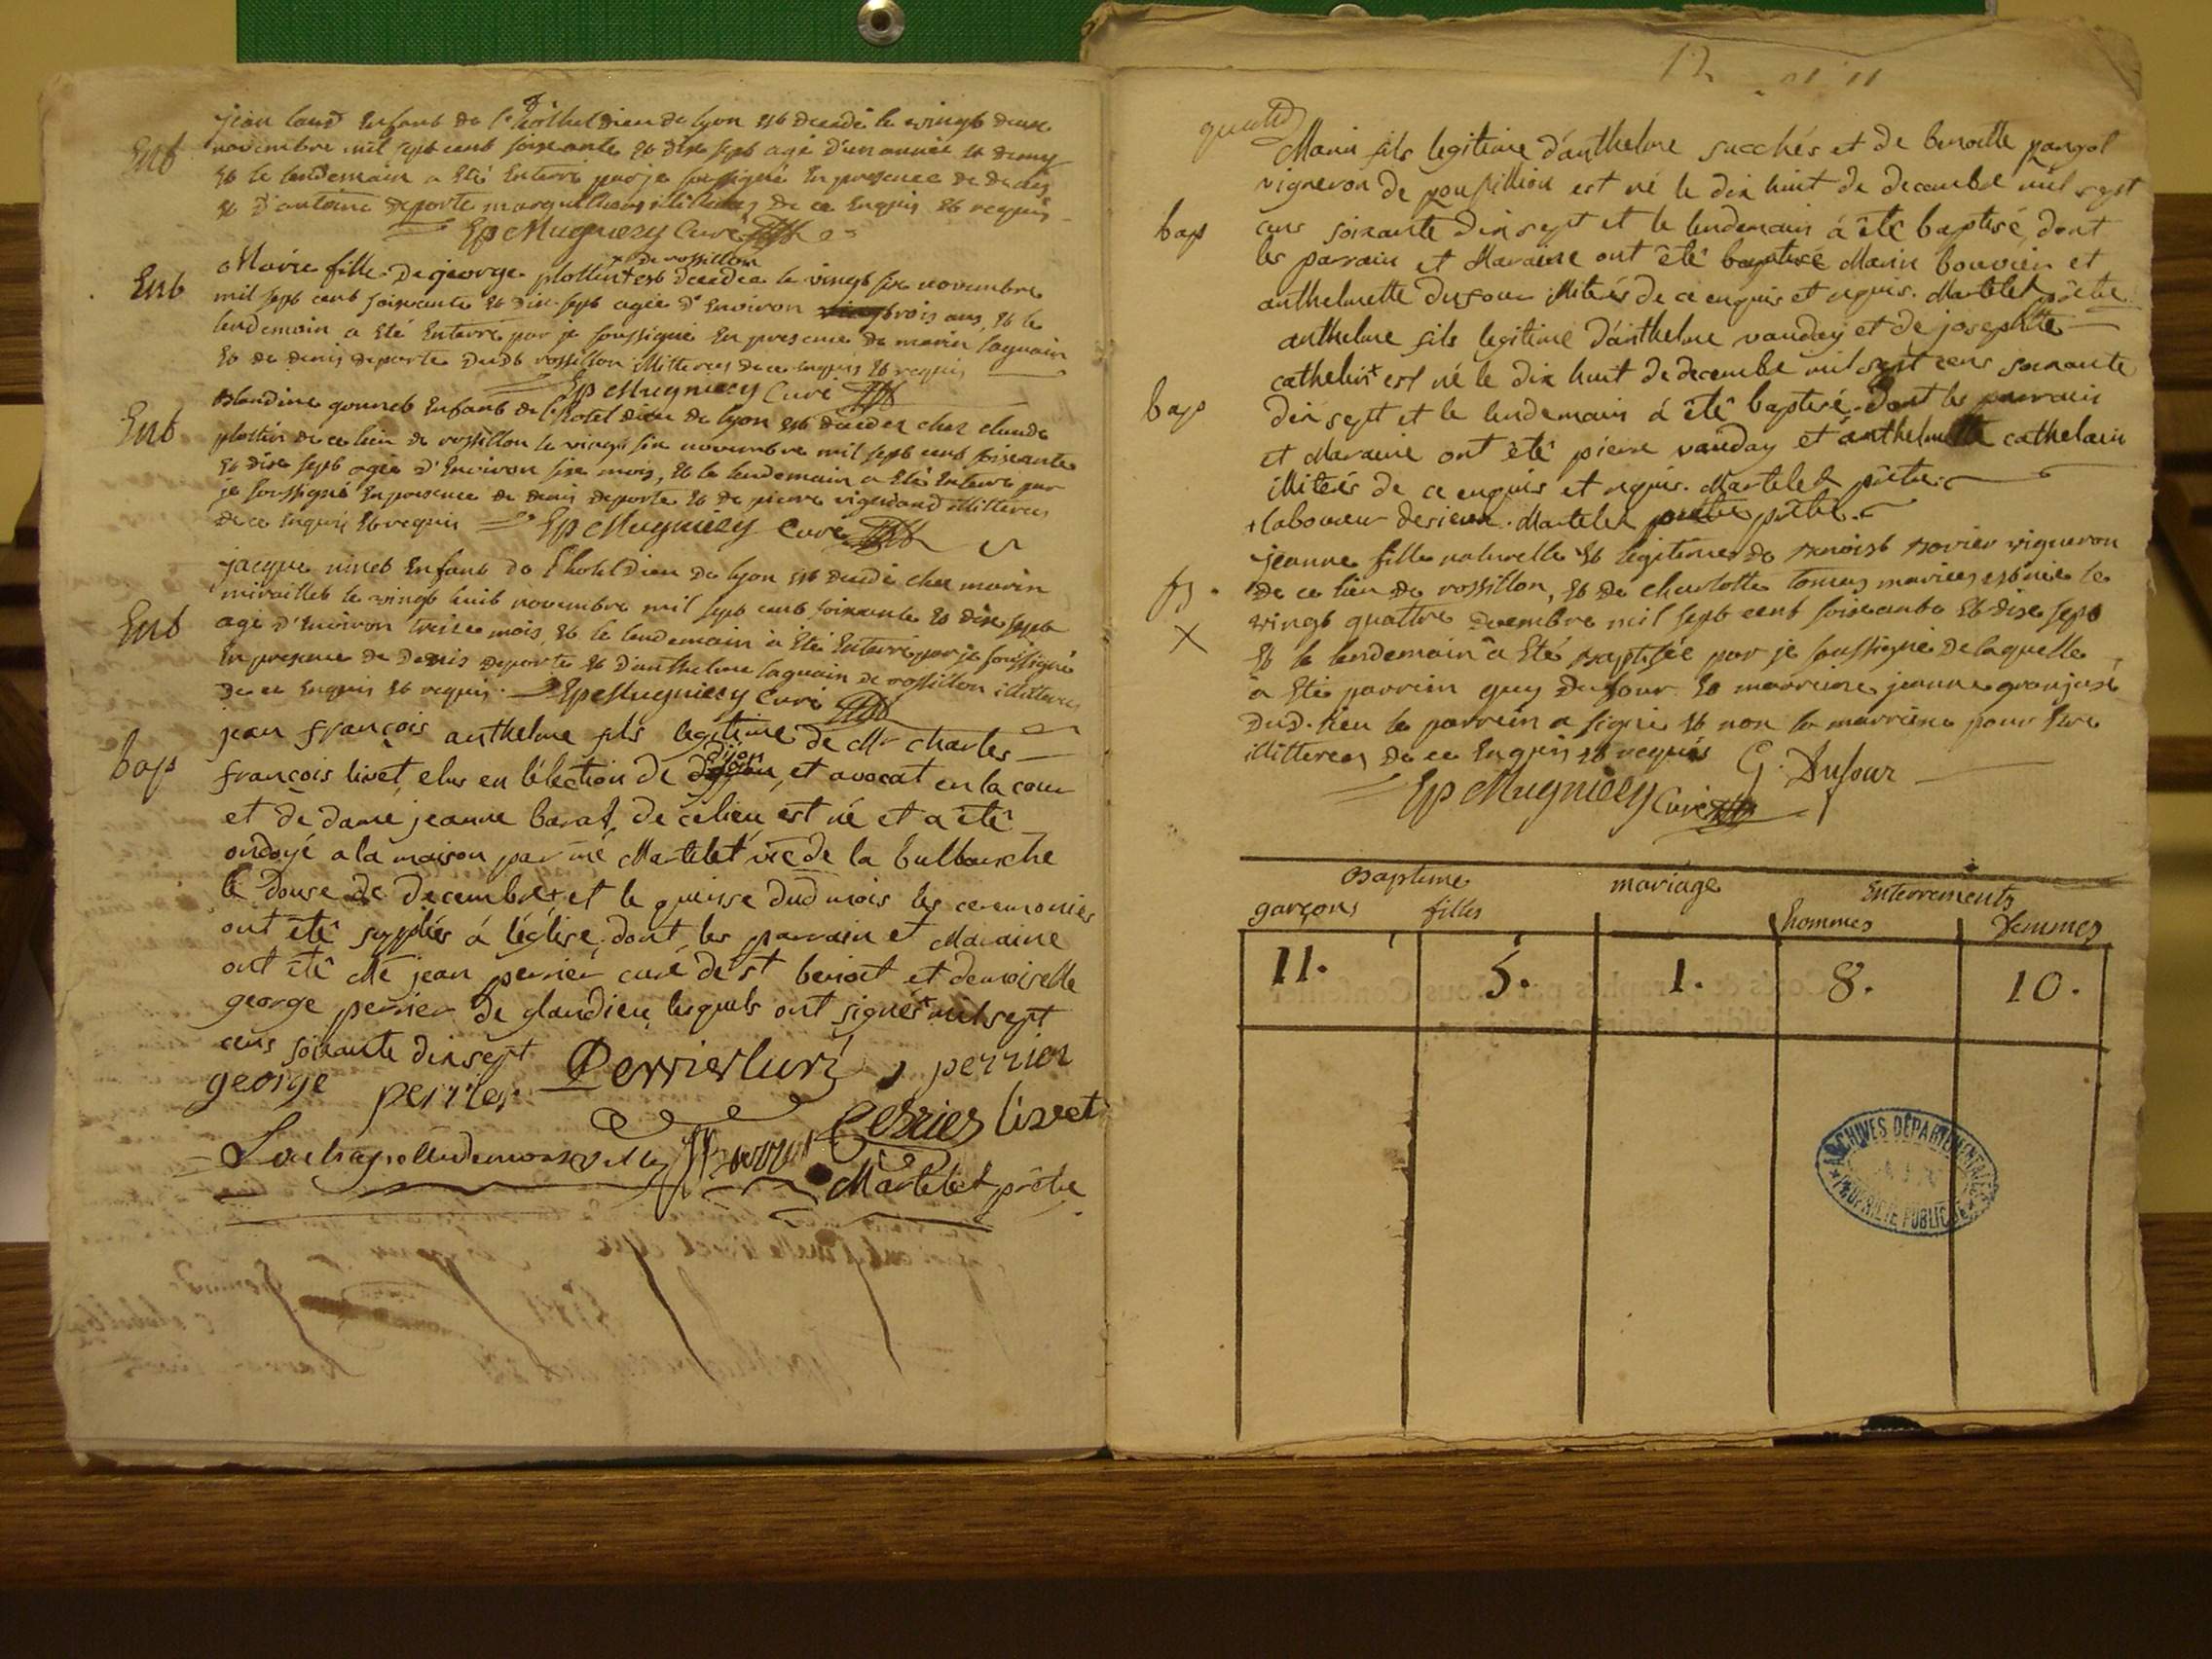 Ent
jean laud Enfant de l'hothel dieu de lyon est decedé le vingt deux
novembre mil sept cent soixante et dix sept agé d'un année et demy
et le lendemain a eté Enterré par je soussigné En presence de denis
et d'antoine deporte marguilliers illitteres de ce Enquis et requis
Ep Mugniery Curé
Ent
Marie fille de george plottin + est decedée le vingt six novembre
+ de rossillon
mil sept cent soixante et dix sept agée d'Environ trois ans, et le
lendemain a eté Enterré par je soussigné En presence de marin laguain
et de denis deporte dudt rossillon illitteres de ce Enquis et requis
Ep Mugniery Curé
Ent
Blandine gonnet Enfant de l'hotel dieu de lyon est decedez chez claude
plottin de ce lieu de rossillon le vingt six novembre mil sept cent soixante
et dix sept agée d'Environ six mois, et le lendemain a eté Enterré par
je soussigné En presence de denis deporte et de pierre vignand illitteres
de ce Enquis et requis Ep Mugniery Curé
Ent
jacque ninet Enfant de l'hotel dieu de lyon est decedé chez marin
miraillet le vingt huit novembre mil sept cent soixante et dix sept
agé d'Environ treize mois, et le lendemain à eté Enterré par je soussigné
En presence de denis deporte et d'anthelme laguain de rossillon illitteres
de ce Enquis et requis. Ep Mugniery Curé
bap
jean françois anthelme fils legitime de Mr charles
françois livet, elus en l'élection de dijon, et avocat en la cour
et de dame jeanne barat, de ce lieu est né et a été
ondoyé a la maison par me Martelet vic de la bulbanche
le douse de decembre + et le quinse dud mois les ceremonies
ont été supplées á l'église, dont les parrain et Maraine
ont été Me jean perrier curé de st benoit et demoiselle
george perrier de glandieu lesquels ont signés + mil sept
cens soixante dix sept
george perrier Perrier curé perrier
Perrier livet
Martelet prêtre
Marin fils legitime d'anthelme succhés et de benoitte pangol
vigneron de poupillion est né le dix huit de decembre mil sept
bap
cens soixante dix sept et le lendemain á été baptisé, dont
les parrain et Maraine ont été baptisé Marin bouvier et
anthelmette dufour illiterés de ce enquis et requis. Martelet prêtre
anthelme fils legitime d'anthelme vanday et de josephte
cathelin + est né le dix huit de decembre mil sept cens soixante
bap
dix sept et le lendemain á été baptisé. Dont les parrain
et Maraine ont été pierre vanday et anthelmette cathelain
illiterés de ce enquis et requis. Martelet prêtre.
+ laboureur Martelet prêtre.
jeanne fille naturelle et legitime de Benoist Bovier vigneron
de ce lieu de rossillon, et de charlotte tomas mariez est née le
vingt quattre decembre mil sept cent soixante et dix sept
X
et le lendemain a eté Baptisée par je soussigné de laquelle
a eté parrein guy dufour et marreine jeanne granjusé
dud. lieu le parrein a signé et non la marreine pour etre
illitteres de ce Enquis et requis G. Dufour
Ep Mugniery Curé
Baptime mariage Enterrements
garçons filles hommes femmes
11. 5. 1. 8. 10.
ARCHIVES DÉPARTEMENTALES
PROPRIÉTÉ PUBLIQUE